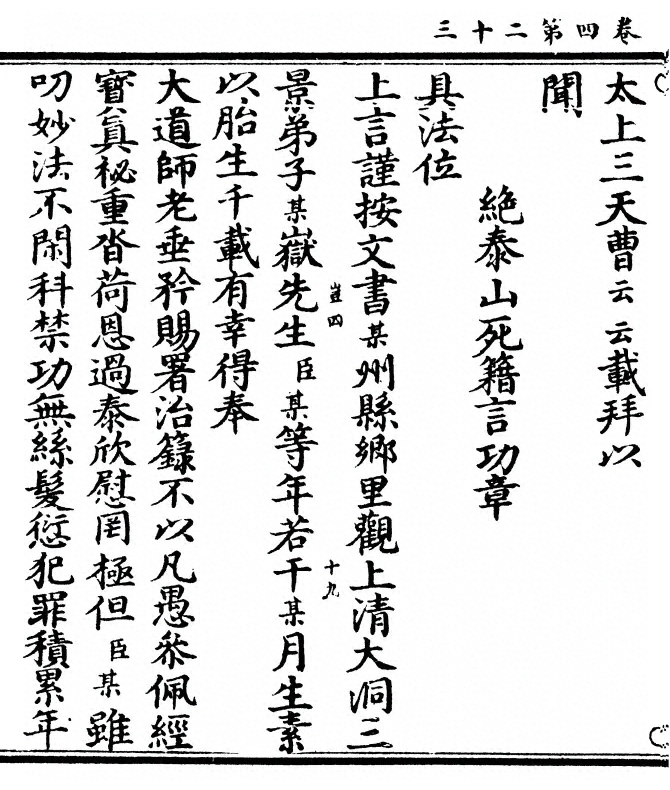 三十二第四卷
太上三天曹云云載拜以
聞
絶泰山死籍言功章
具法位
上言謹按文書某州縣鄉里觀上清大洞三
景弟子某嶽先生臣某等年若干某月生素
豈四
十九
以胎生千載有幸得奉
大道師老垂矜賜署治籙不以凡愚叅佩經
寳眞祕重沓荷恩過泰欣慰罔極但臣某雖
叨妙法不閑科禁功無絲髮愆犯罪積累年